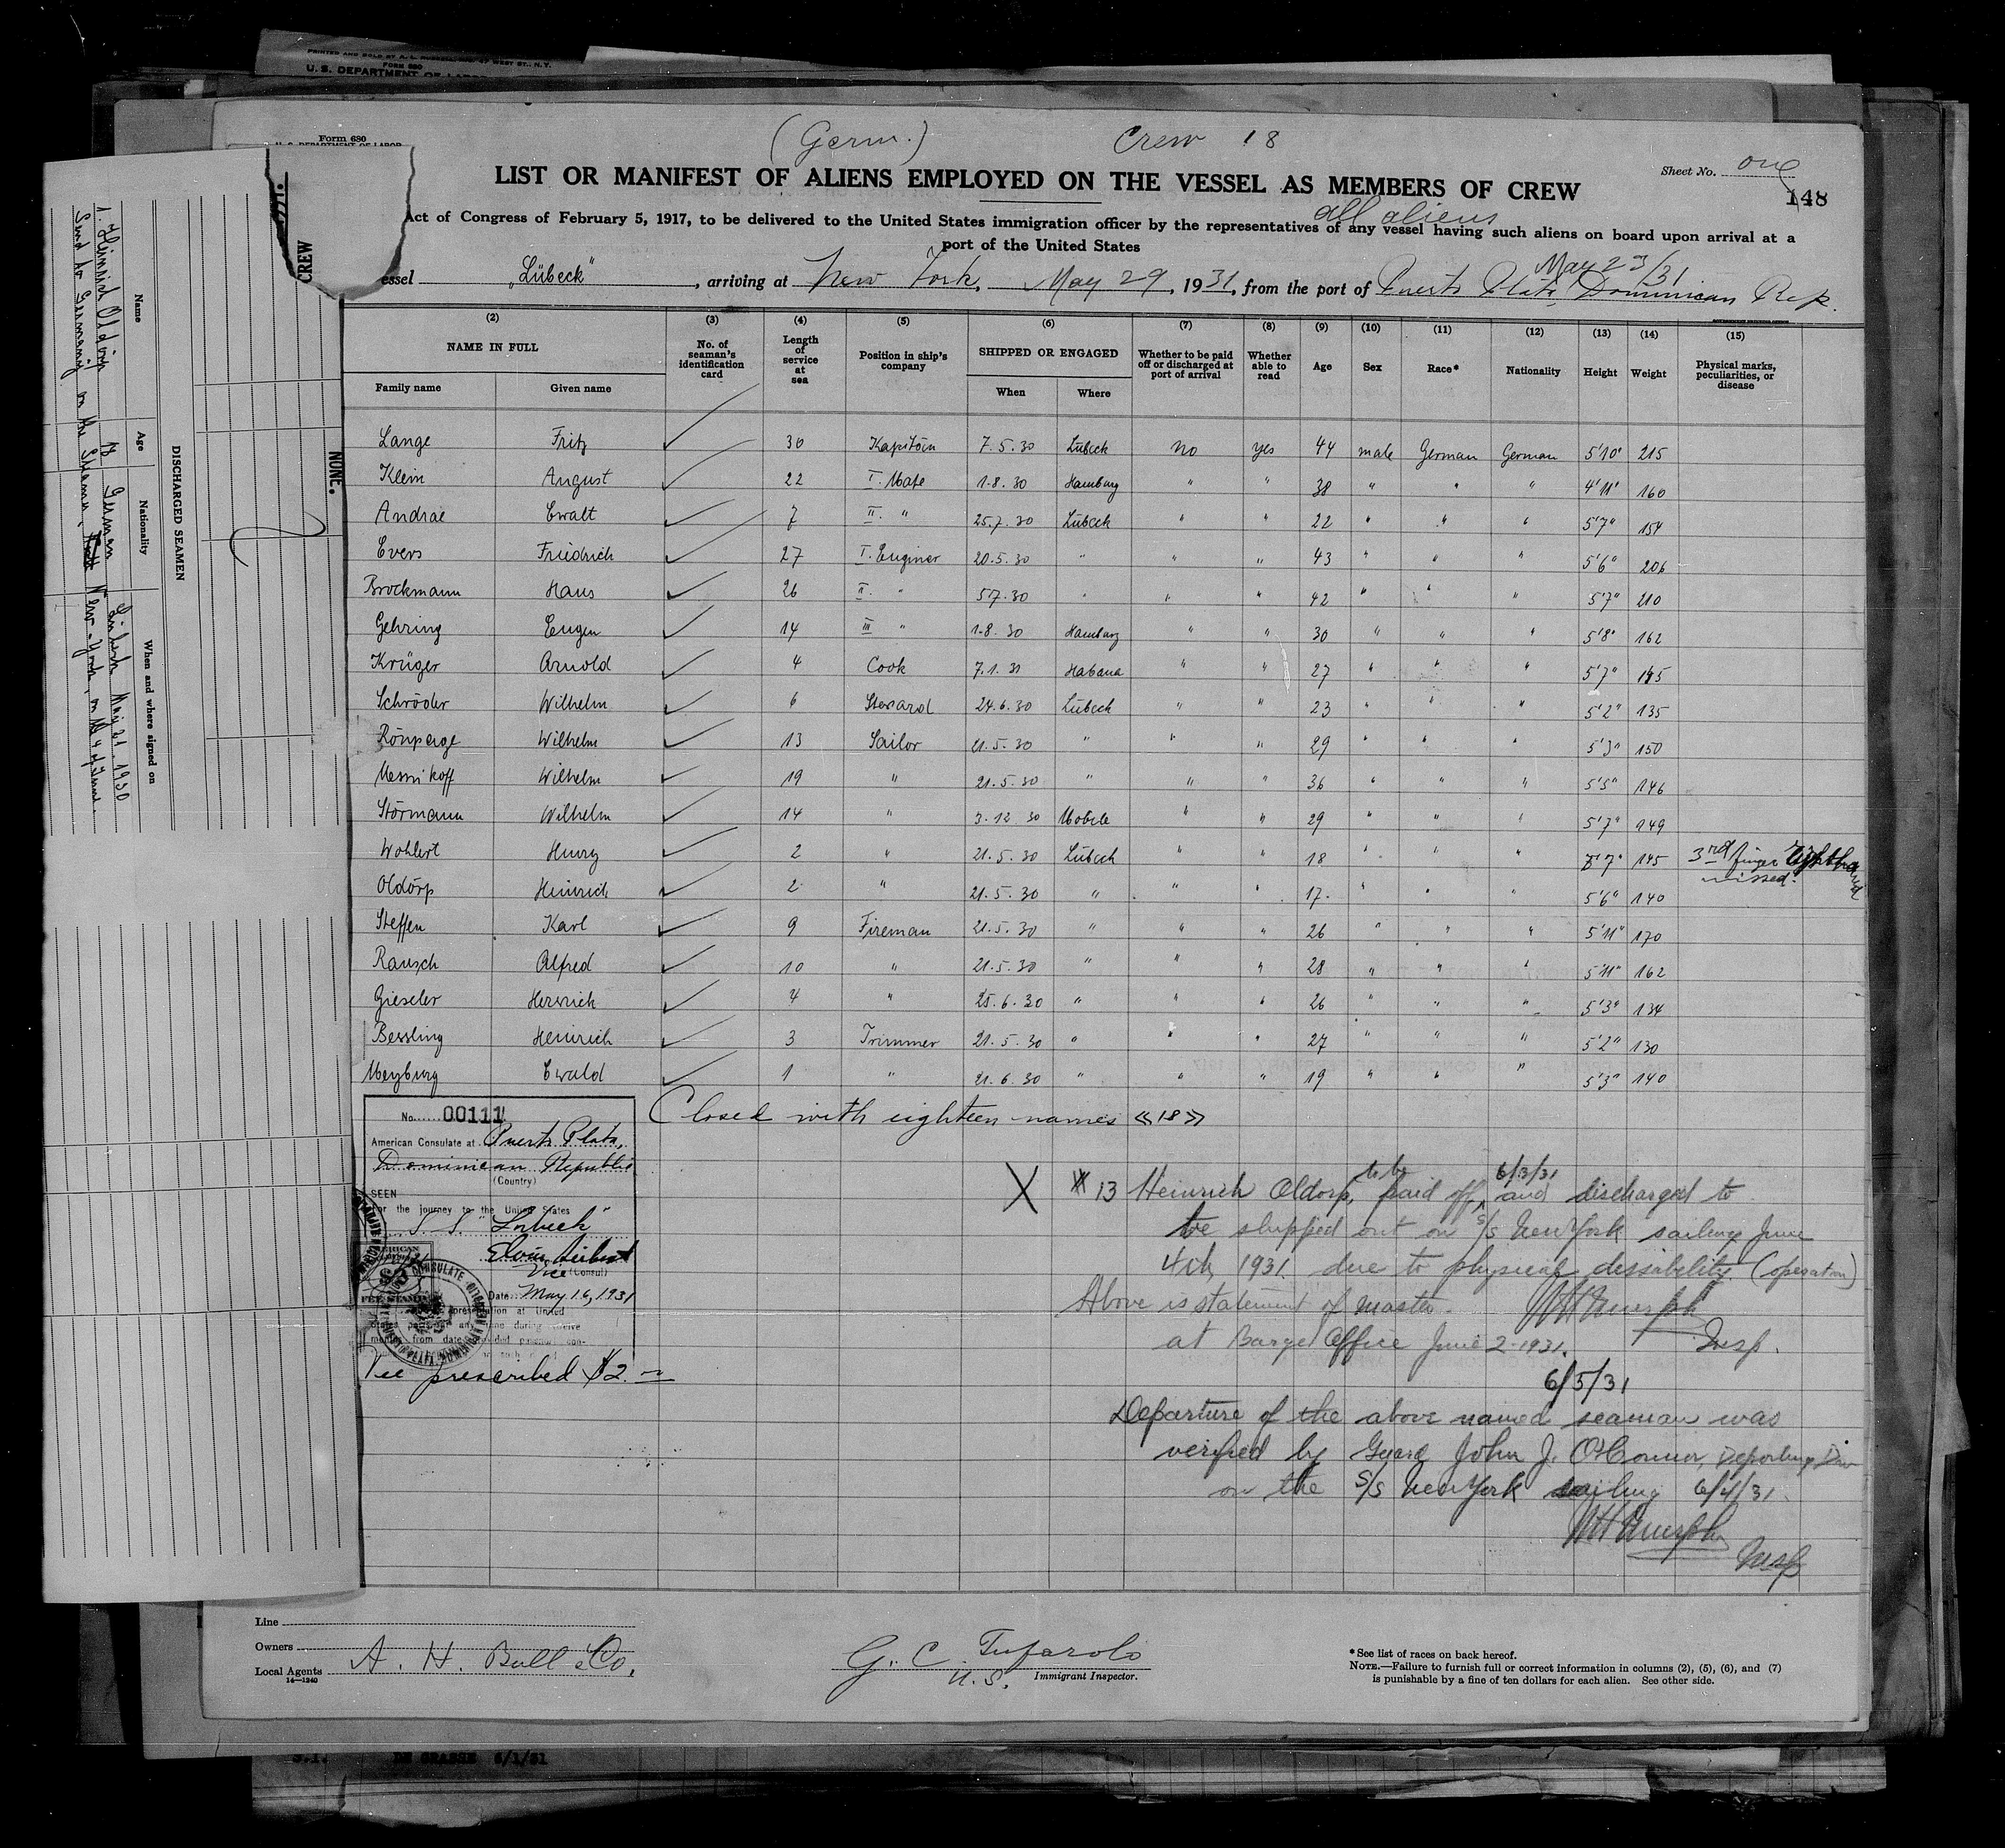 PRINTED AND SOLD BY
WEST ST., N.Y.
FORM 680
U. S. DEPARTMENT OF LABOR
Form 680
(Germ.) Crew 18
Sheet No. one
148
LIST OR MANIFEST OF ALIENS EMPLOYED ON THE VESSEL AS MEMBERS OF CREW
all aliens
Act of Congress of February 5, 1917, to be delivered to the United States immigration officer by the representatives of any vessel having such aliens on board upon arrival at a
port of the United States
May 23/31
essel „Lübeck“, arriving at New York, May 29, 1931, from the port of Puerto Plata, Dominican Rep.
(2) (3) (4) (5) (6) (7) (8) (9) (10) (11) (12) (13) (14) (15)
NAME IN FULL
Family name Given name
No. of seaman's identification card
Length of service at sea
Position in ship's company
SHIPPED OR ENGAGED
When Where
Whether to be paid off or discharged at port of arrival
Whether able to read
Age
Sex
Race*
Nationality
Height
Weight
Physical marks, peculiarities, or disease
Lange Fritz 30 Kapitän 7.5.30 Lübeck no yes 44 male German German 5'10" 215
Klein August 22 I. Mate 1.8.30 Hamburg " " 38 " " " 4'11" 160
Andrae Ewalt 7 II. " 25.7.30 Lübeck " " 22 " " " 5'7" 154
Evers Friedrich 27 I. Enginer 20.5.30 " " " 43 " " " 5'6" 206
Brockmann Hans 26 II. " 5.7.30 " " " 42 " " " 5'7" 210
Gehring Eugen 14 III " 1.8.30 Hamburg " " 30 " " " 5'8" 162
Krüger Arnold 4 Cook 7.1.31 Habana " " 27 " " " 5'7"
Schröder Wilhelm 6 Steward 24.6.30 Lübeck " " 23 " " " 5'2" 135
Wilhelm 13 Sailor 21.5.30 " " " 29 " " " 5'3" 150
Wilhelm 19 " 21.5.30 " " " 36 " " " 5'5" 146
Störmann Wilhelm 14 " 3.12.30 Mobile " " 29 " " " 5'7" 149
Wohlert Henry 2 " 21.5.30 Lübeck " " 18 " " " 145 3rd finger right hand
missed.
Oldörp Heinrich 2 " 21.5.30 " " " 17 " " " 5'6" 140
Steffen Karl 9 Fireman 21.5.30 " " " 26 " " " 5'11" 170
Rausch Alfred 10 " 21.5.30 " " " 28 " " " 5'11" 162
Gieseler 4 " 25.6.30 " " " 26 " " " 5'3" 134
Bessling Heinrich 3 Trimmer 21.5.30 " " " 27 " " " 5'2" 130
Meyburg Ewald 1 " 21.6.30 " " " 19 " " " 5'3" 140
Closed with eighteen names «18»
No. 00111
American Consulate at Puerto Plata,
Dominican Republic
(Country)
SEEN
For the journey to the United States
S. S. "Lübeck"
Vice (Consul)
Date May 16, 1931
Fee prescribed $2.
X 13 Heinrich Oldorp, to be paid off, 6/3/31 and discharged to
be shipped out on S/S New York sailing June
4th, 1931 due to physical dissability (operation)
Above is statement of master.
at Barge Office June 2-1931. Insp.
6/5/31
Departure of the above named seaman was
verified by Guard John J. O'Connor, Deporting Div
on the S/S New York sailing 6/4/31.
Insp
Line
Owners
Local Agents A. H. Bull & Co.
14—1240
G. C. Tufarolo
U. S. Immigrant Inspector.
*See list of races on back hereof.
NOTE.—Failure to furnish full or correct information in columns (2), (5), (6), and (7)
is punishable by a fine of ten dollars for each alien. See other side.
CREW
NONE.
DISCHARGED SEAMEN
Name Age Nationality When and where signed on
1. Heinrich Oldörp 18 German Lübeck May 21 1930
Send to Germany on the Steamer, New-York, on the 4 of June.
DE GRASSE 6/1/31